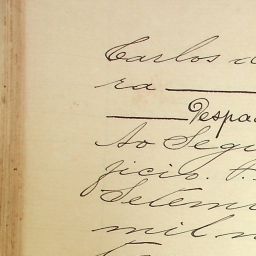 Carlos
ra
Despa
Ao Segu
gicio.
Setem
mil n